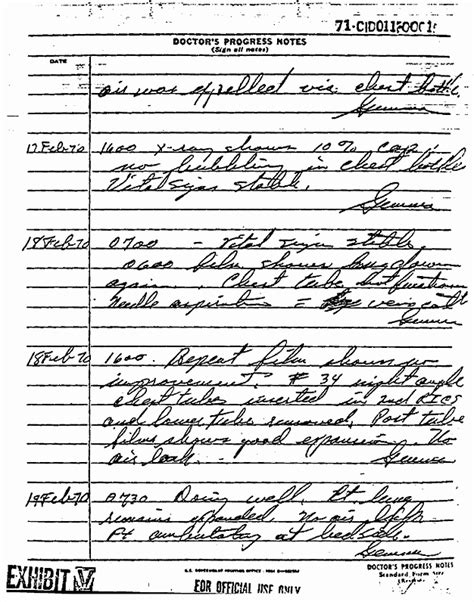 71-CID011-00015
DOCTOR'S PROGRESS NOTES
(Sign all notes)
DATE
air was expelled via chest bottle.
Gemma
17 Feb 70 1600 X-ray shows 10% cap,
no bubbling in chest bottle
Vital signs stable.
Gemma
18 Feb 70 0700 - Vital signs stable
0600 film shows lung down
again. Chest tube not function
Needle aspiration =
Gemma
18 Feb 70 1600. Repeat film shows no
improvement. # 34 right angle
chest tubes inserted in 2nd RICS
and lower tube removed. Post tube
films shows good expansion. No
air leak.
Gemma
19 Feb 70 0730 Doing well. Rt lung
remains expanded. No air
Pt ambulatory at bedside.
Gemma
U.S. GOVERNMENT PRINTING OFFICE
DOCTOR'S PROGRESS NOTES
Standard Form
EXHIBIT
FOR OFFICIAL USE ONLY